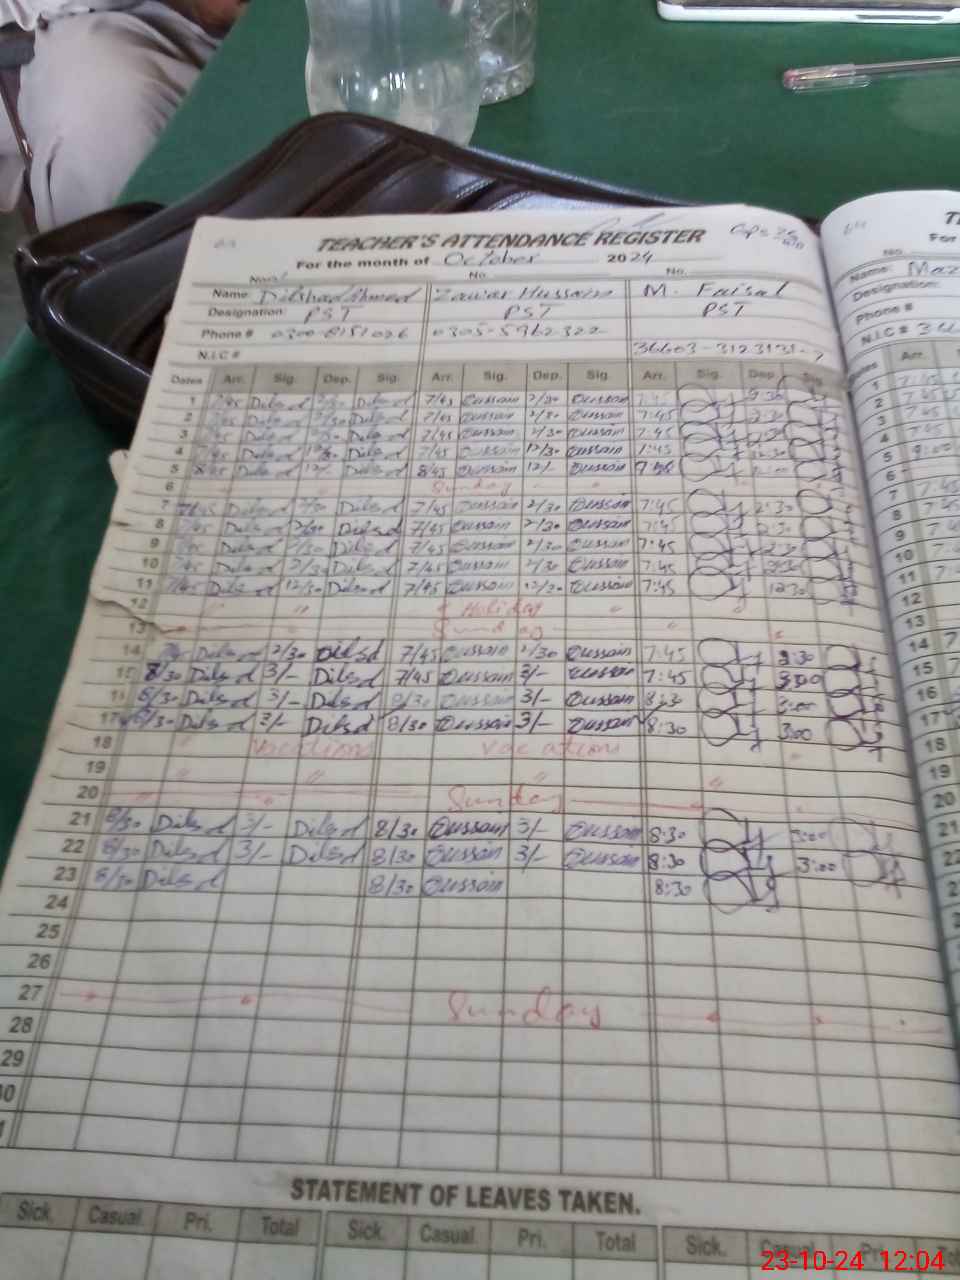 TEACHER'S ATTENDANCE REGISTER
For the month of October 2024
No. No.
Name: Dilshad Ahmed Zawar Hussain M. Faisal
Designation: PST PST PST
Phone # 0300-8151026 0305-5962322
N.I.C # 36603-3123131-7
Dates Arr. Sig. Dep. Sig. Arr. Sig. Dep. Sig. Arr. Sig. Dep. Sig.
1 7/45 Dilsd 2/30 Dilsd 7/45 Oussain 2/30 Oussain 7:45 2:30
2 7/45 Dilsd 2/30 Dilsd 7/45 Oussain 2/30 Oussain 7:45 2:30
3 7/45 Dilsd 2/30 Dilsd 7/45 Oussain 2/30 Oussain 7:45 2:30
4 7/45 Dilsd 12/30 Dilsd 7/45 Oussain 12/30 Oussain 7:45 12:30
5 8/45 Dilsd 12/- Dilsd 8/45 Oussain 12/- Oussain 12:00
6 Sunday
7 7/45 Dilsd 2/30 Dilsd 7/45 Oussain 2/30 Oussain 7:45 2:30
8 7/45 Dilsd 2/30 Dilsd 7/45 Oussain 2/30 Oussain 7:45 2:30
9 7/45 Dilsd 2/30 Dilsd 7/45 Oussain 2/30 Oussain 7:45 2:30
10 7/45 Dilsd 2/30 Dilsd 7/45 Oussain 2/30 Oussain 7:45 2:30
11 7/45 Dilsd 12/30 Dilsd 7/45 Oussain 12/30 Oussain 7:45 12:30
12 " " Holiday "
13 Sunday
14 7/45 Dilsd 2/30 Dilsd 7/45 Oussain 2/30 Oussain 7:45 2:30
15 8/30 Dilsd 3/- Dilsd 7/45 Oussain 3/- Oussain 7:45 3:00
16 8/30 Dilsd 3/- Dilsd 8/30 Oussain 3/- Oussain 8:30 3:00
17 8/30 Dilsd 3/- Dilsd 8/30 Oussain 3/- Oussain 8:30 3:00
18 " Vacations Vacations "
19 " " " "
20 Sunday
21 8/30 Dilsd 3/- Dilsd 8/30 Oussain 3/- Oussain 8:30 3:00
22 8/30 Dilsd 3/- Dilsd 8/30 Oussain 3/- Oussain 8:30 3:00
23 8/30 Dilsd 8/30 Oussain 8:30
24
25
26
27 Sunday
28
29
STATEMENT OF LEAVES TAKEN.
Sick. Casual. Pri. Total Sick. Casual. Pri. Total Sick. Casual Pri.
For
No.
Name: Maz
Designation:
Phone #
N.I.C #
Arr.
1
2
3
4
5
6
7
8
9
10
11
12
13
14
15
16
17
18
19
20
21
23-10-24 12:04